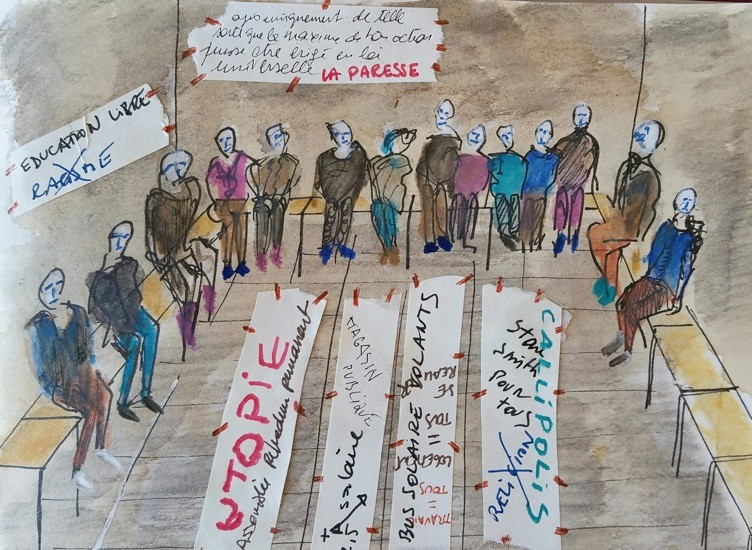 uniquement de telle
sorte que la maxime de ton action
puisse être érigé en loi
universelle LA PARESSE
EDUCATION LIBRE
RACISME
UTOPIE
Assemblée Referendum permanent
MAGASIN
PUBLIQUE
salaire
BUS SOLAIRE VOLANTS
TRAVAIL
TOUS =
LOGEMENTS
TOUS =
SE
REAU
CALLIPOLIS
Stan
Smith
pour
tous
RELIGION